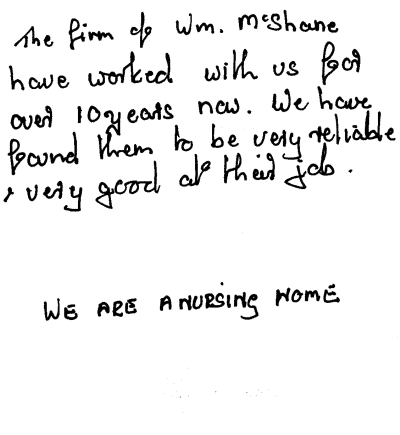 The firm of Wm. McShane
have worked with us for
over 10 years now. We have
found them to be very reliable
& very good at their job.
WE ARE A NURSING HOME